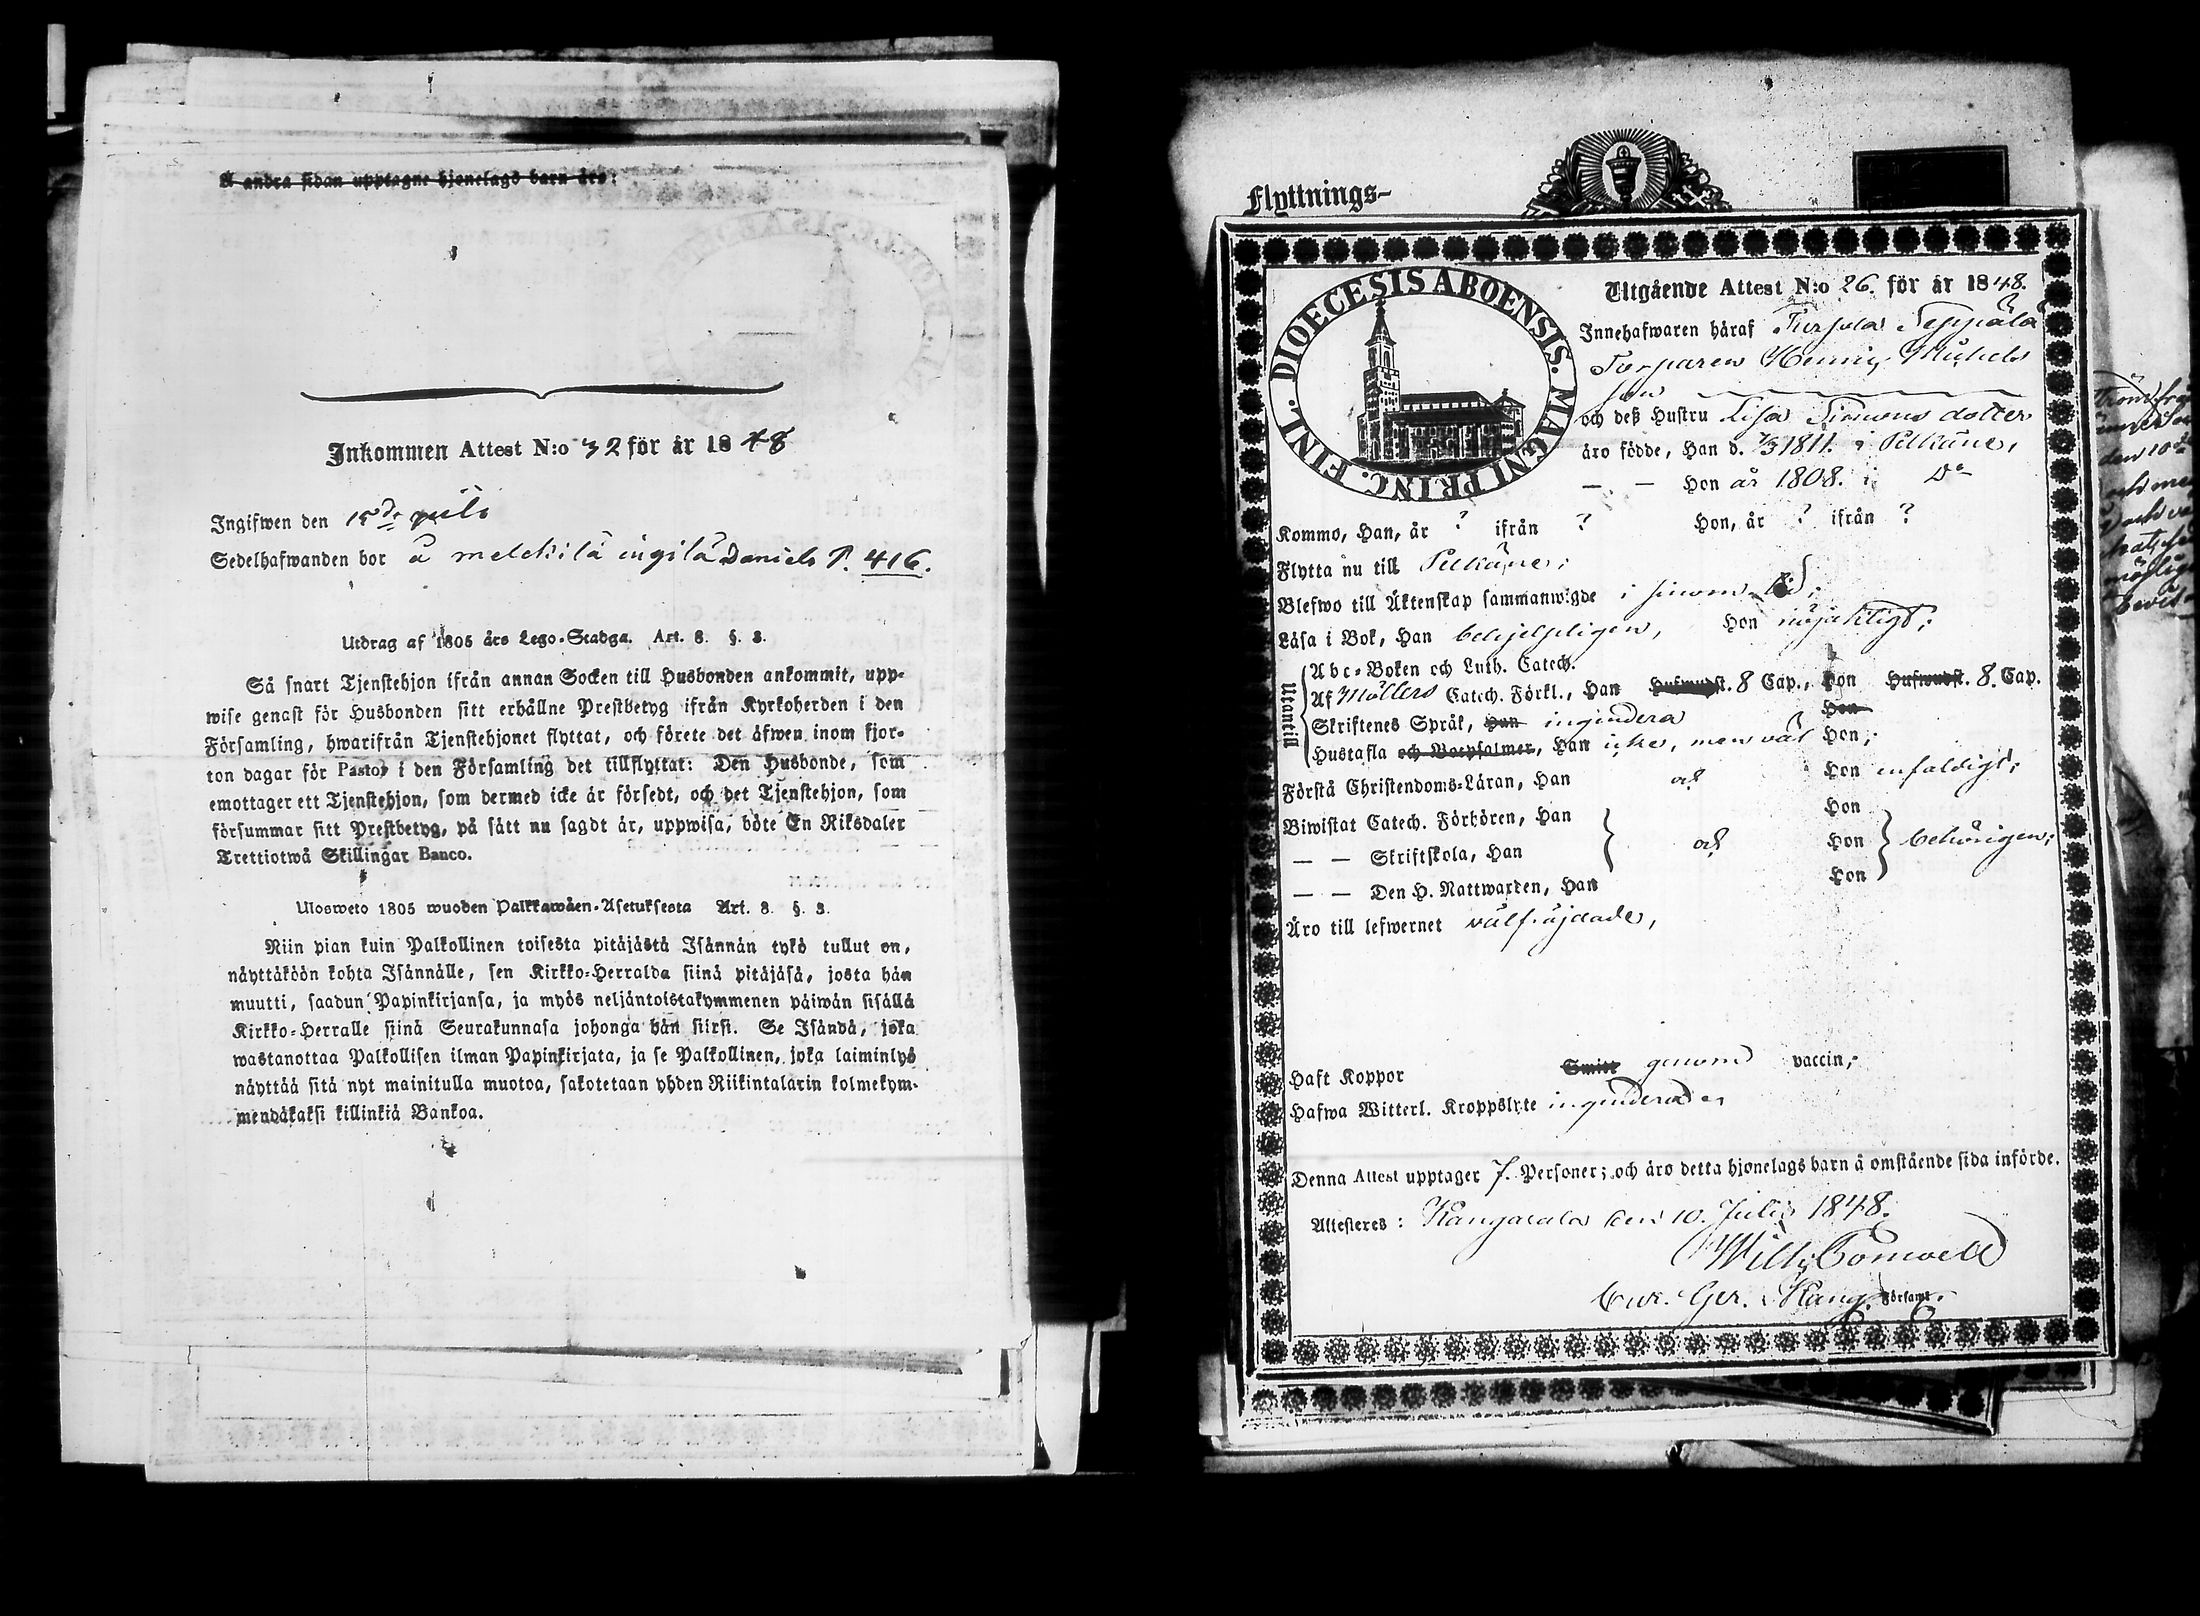 A andra sidan upptagne hjonelags barn äro:
Inkommen Attest N:o 32 för år 1848
Ingifwen den 15de juli
Sedelhafwanden bor å melckilä ingilä Daniels P. 416.
Utdrag af 1805 års Lego-Stadga. Art. 8. §. 3.
Så snart Tjenstehjon ifrån annan Socken till Husbonden ankommit, upp-
wise genast för Husbonden sitt erhållne Prestbetyg ifrån Kyrkoherden i den
Församling, hwarifrån Tjenstehjonet flyttat, och förete det äfwen inom fjor-
ton dagar för Pastor i den Församling det tillflyttat: Den Husbonde, som
emottager ett Tjenstehjon, som dermed icke är försedt, och det Tjenstehjon, som
försummar sitt Prestbetyg, på sätt nu sagdt är, uppwisa, böte En Riksdaler
Trettiotwå Skillingar Banco.
Ulosweto 1805 wuoden Palkkawäen-Asetuksesta Art. 8. §. 3.
Niin pian kuin Palkollinen toisesta pitäjästä Isännän tykö tullut on,
näyttäköön kohta Isännälle, sen Kirkko-Herralda siinä pitäjäsä, josta hän
muutti, saadun Papinkirjansa, ja myös neljäntoistakymmenen päiwän sisällä
Kirkko-Herralle siinä Seurakunnasa johonga hän siirsi. Se Isändä, joka
wastanottaa Palkollisen ilman Papinkirjata, ja se Palkollinen, joka laiminlyö
näyttää sitä nyt mainitulla muotoa, sakotetaan yhden Riikintalarin kolmekym-
mendäkaksi killinkiä Bankoa.
Flyttnings-
DIOECESIS ABOENSIS. MAGNI PRINC. FINL.
Utgående Attest N:o 26. för år 1848.
Innehafwaren häraf Turpula Seppälä
Torparen Henric Michels
son
och deß Hustru Lisa Simons dotter
äro födde, Han d. 1/3 1811. i Pelkäne,
— — Hon år 1808. i Do
Kommo, Han, år ? ifrån ? Hon, år ? ifrån ?
Flytta nu till Pelkäne;
Blefwo till Äktenskap sammanwigde i sinom tid;
Läsa i Bok, Han behjelpligen, Hon nöjaktigt;
Utantill
Abc-Boken och Luth. Catech.
Af Möllers Catech. Förkl., Han Hufwudst. 8 Cap., Hon Hufwudst. 8. Cap.
Skriftenes Språk, Han ingendera Hon
Hustafla och Botpsalmer, Han icke, men väl Hon;
Förstå Christendoms-Läran, Han och Hon enfaldigt;
Biwistat Catech. Förhören, Han Hon
— — Skriftskola, Han och Hon behörigen;
— — Den H. Nattwarden, Han Hon
Äro till lefwernet välfräjdade,
Haft Koppor Smitt genom vaccin;
Hafwa Witterl. Kroppslyte ingendera
Denna Attest upptager 7. Personer; och äro detta hjonelags barn å omstående sida införde.
Attesteres: Kangasala den 10. Julii 1848.
Cur. Ger. Kang. Församl.